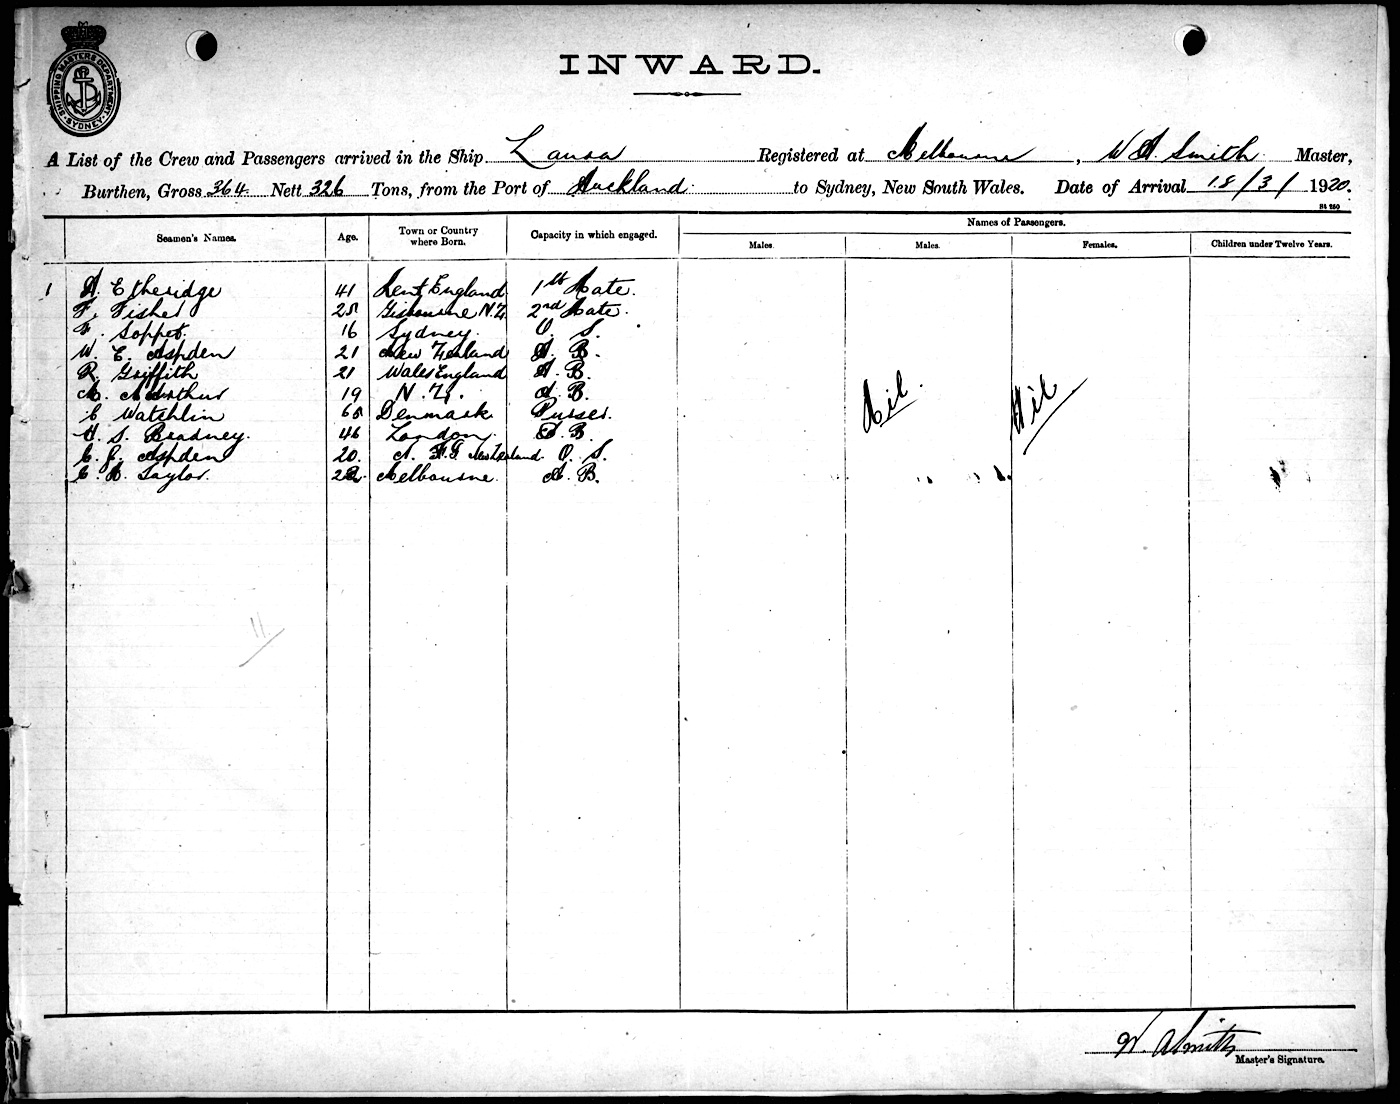 SHIPPING MASTERS DEPARTMENT
SYDNEY
INWARD.
A List of the Crew and Passengers arrived in the Ship Laura Registered at Melbourne, W A Smith Master,
Burthen, Gross 364 Nett 326 Tons, from the Port of Auckland to Sydney, New South Wales. Date of Arrival 18/3/1920.
St 250
Names of Passengers.
Seamen's Names. Age. Town or Country where Born. Capacity in which engaged. Males. Males. Females. Children under Twelve Years.
1 A. Etheridge 41 Kent England 1st Mate.
F. Fisher 25 Gisbourne N.Z. 2nd Mate.
F. Soppet. 16 Sydney. O. S.
W. E. Aspden 21 New Zealand A. B.
R. Griffith 21 Wales England A. B.
M. McArthur 19 N. Z. A. B.
C Watchlin 65 Denmark Purser.
H. S. Beadney. 46 London. A. B.
C. J. Aspden 20. New Zealand O. S.
C. H. Taylor. 22 Melbourne. A. B.
Nil. Nil
11
W. A Smith
Master's Signature.